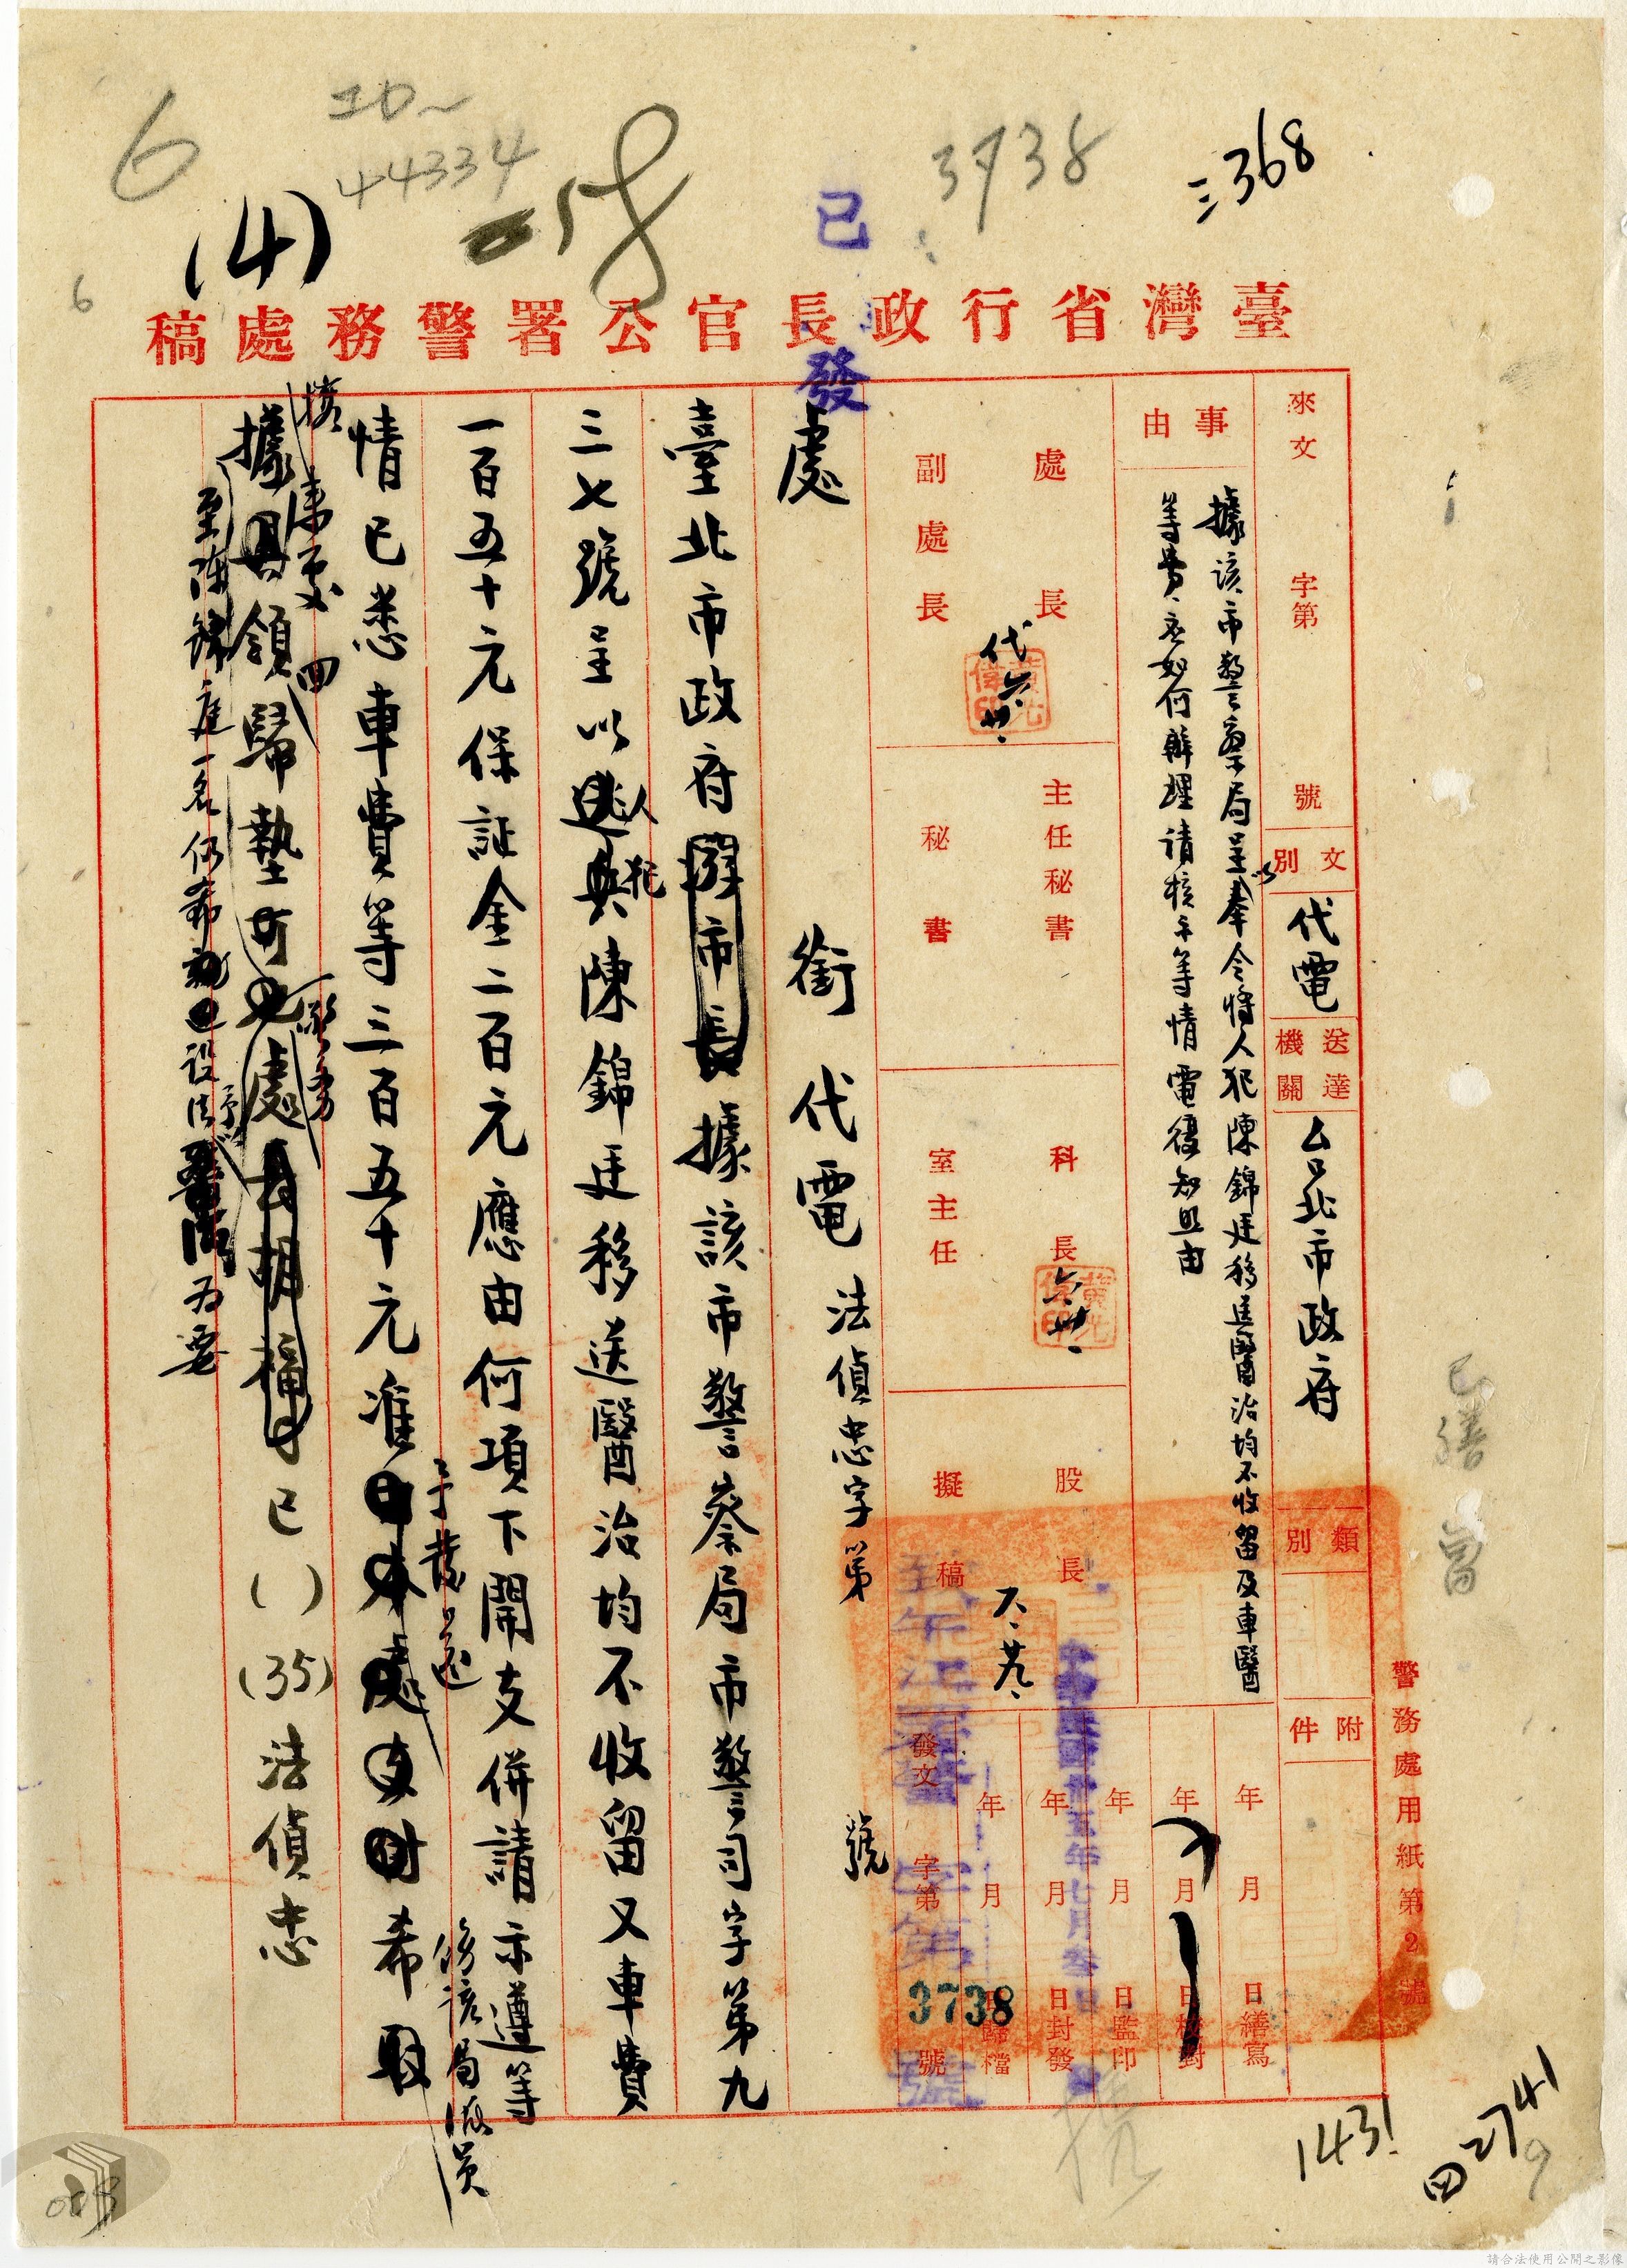 三368
3738
已發
58
44334
6
(4)
6
臺灣省行政長官公署警務處稿
來文 字第 號
文別 代電
送達機關 台北市政府
類別
附件
事由
據該市警察局呈以奉令將人犯陳錦廷移送醫治均不收留及車醫
等費應如何辦理請核示等情電復知照由
處長
副處長
代 六 廿
主任秘書
秘書
科長
室主任
股長
擬稿
年 月 日繕寫
年 月 日校對
年 月 日監印
年 月 日封發
年 月 日歸檔
發文 字第 3738 號
警務處用紙第2號
處銜代電 法偵忠字第 號
臺北市政府 據該市警察局市警司字第九
三七號呈以人犯陳錦廷移送醫治均不收留又車費
一百五十元保証金二百元應由何項下開支併請示遵等
情已悉車費等三百五十元准予發還希飭該局派員
據領歸墊 警務處 已( )(35)法偵忠
至陳錦廷一名仍希 設法予 為要
已繕
143!
四 2741
9
請合法使用公開之影像